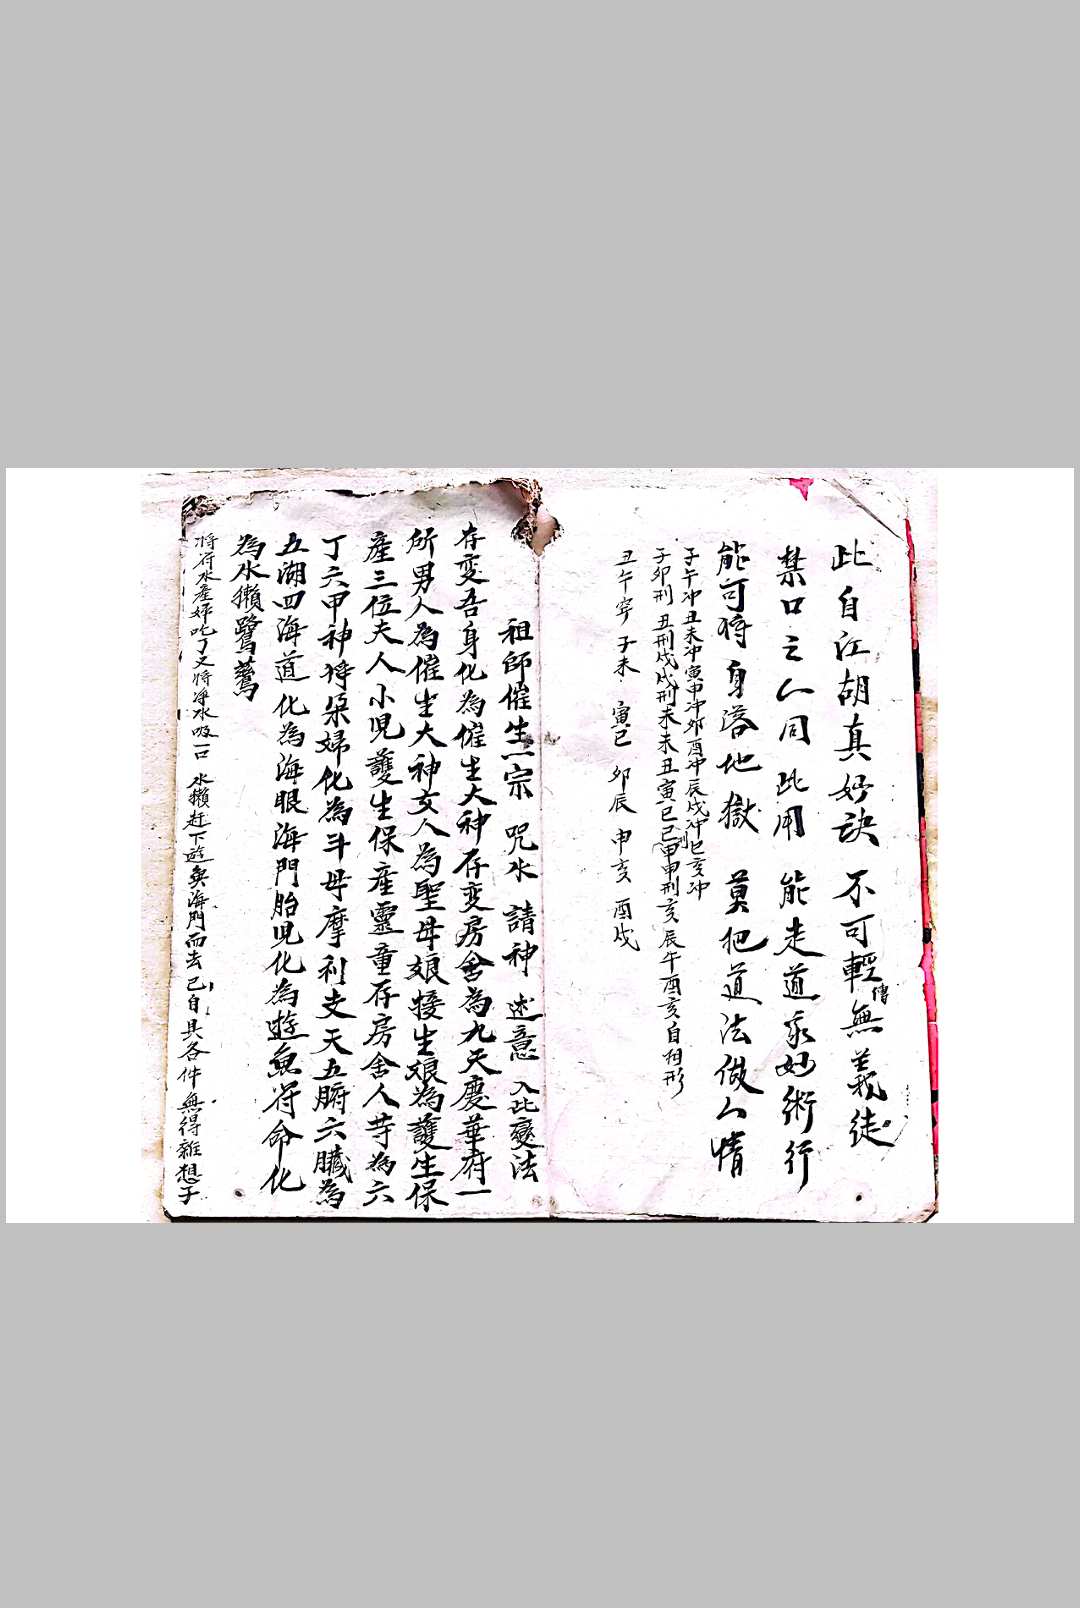 此自江胡真妙訣不可輕傳無義徒
禁口之人同此用能走道家妙術行
能可將身落地獄莫把道法做人情
子午冲丑未冲寅申冲卯酉冲辰戌冲巳亥冲
子卯刑丑刑戌戌刑未未丑寅巳巳刑申申刑亥辰午酉亥自相形
丑午穿子未寅巳卯辰申亥酉戌
祖師催生一宗咒水請神述意入此變法
存变吾身化為催生大神存变房舍為九天慶華府一
所男人為催生大神女人為聖母娘接生娘為護生保
產三位夫人小児護生保產靈童存房舍人等為六
丁六甲神将朶婦化為斗母摩利支天五腑六臟為
五湖四海道化為海眼海門胎児化為遊魚符命化
為水獺鷺鶿
将符水產婦吃了又将净水吸一口水獺赶下遊魚海門而去己自具各件無得雜想子